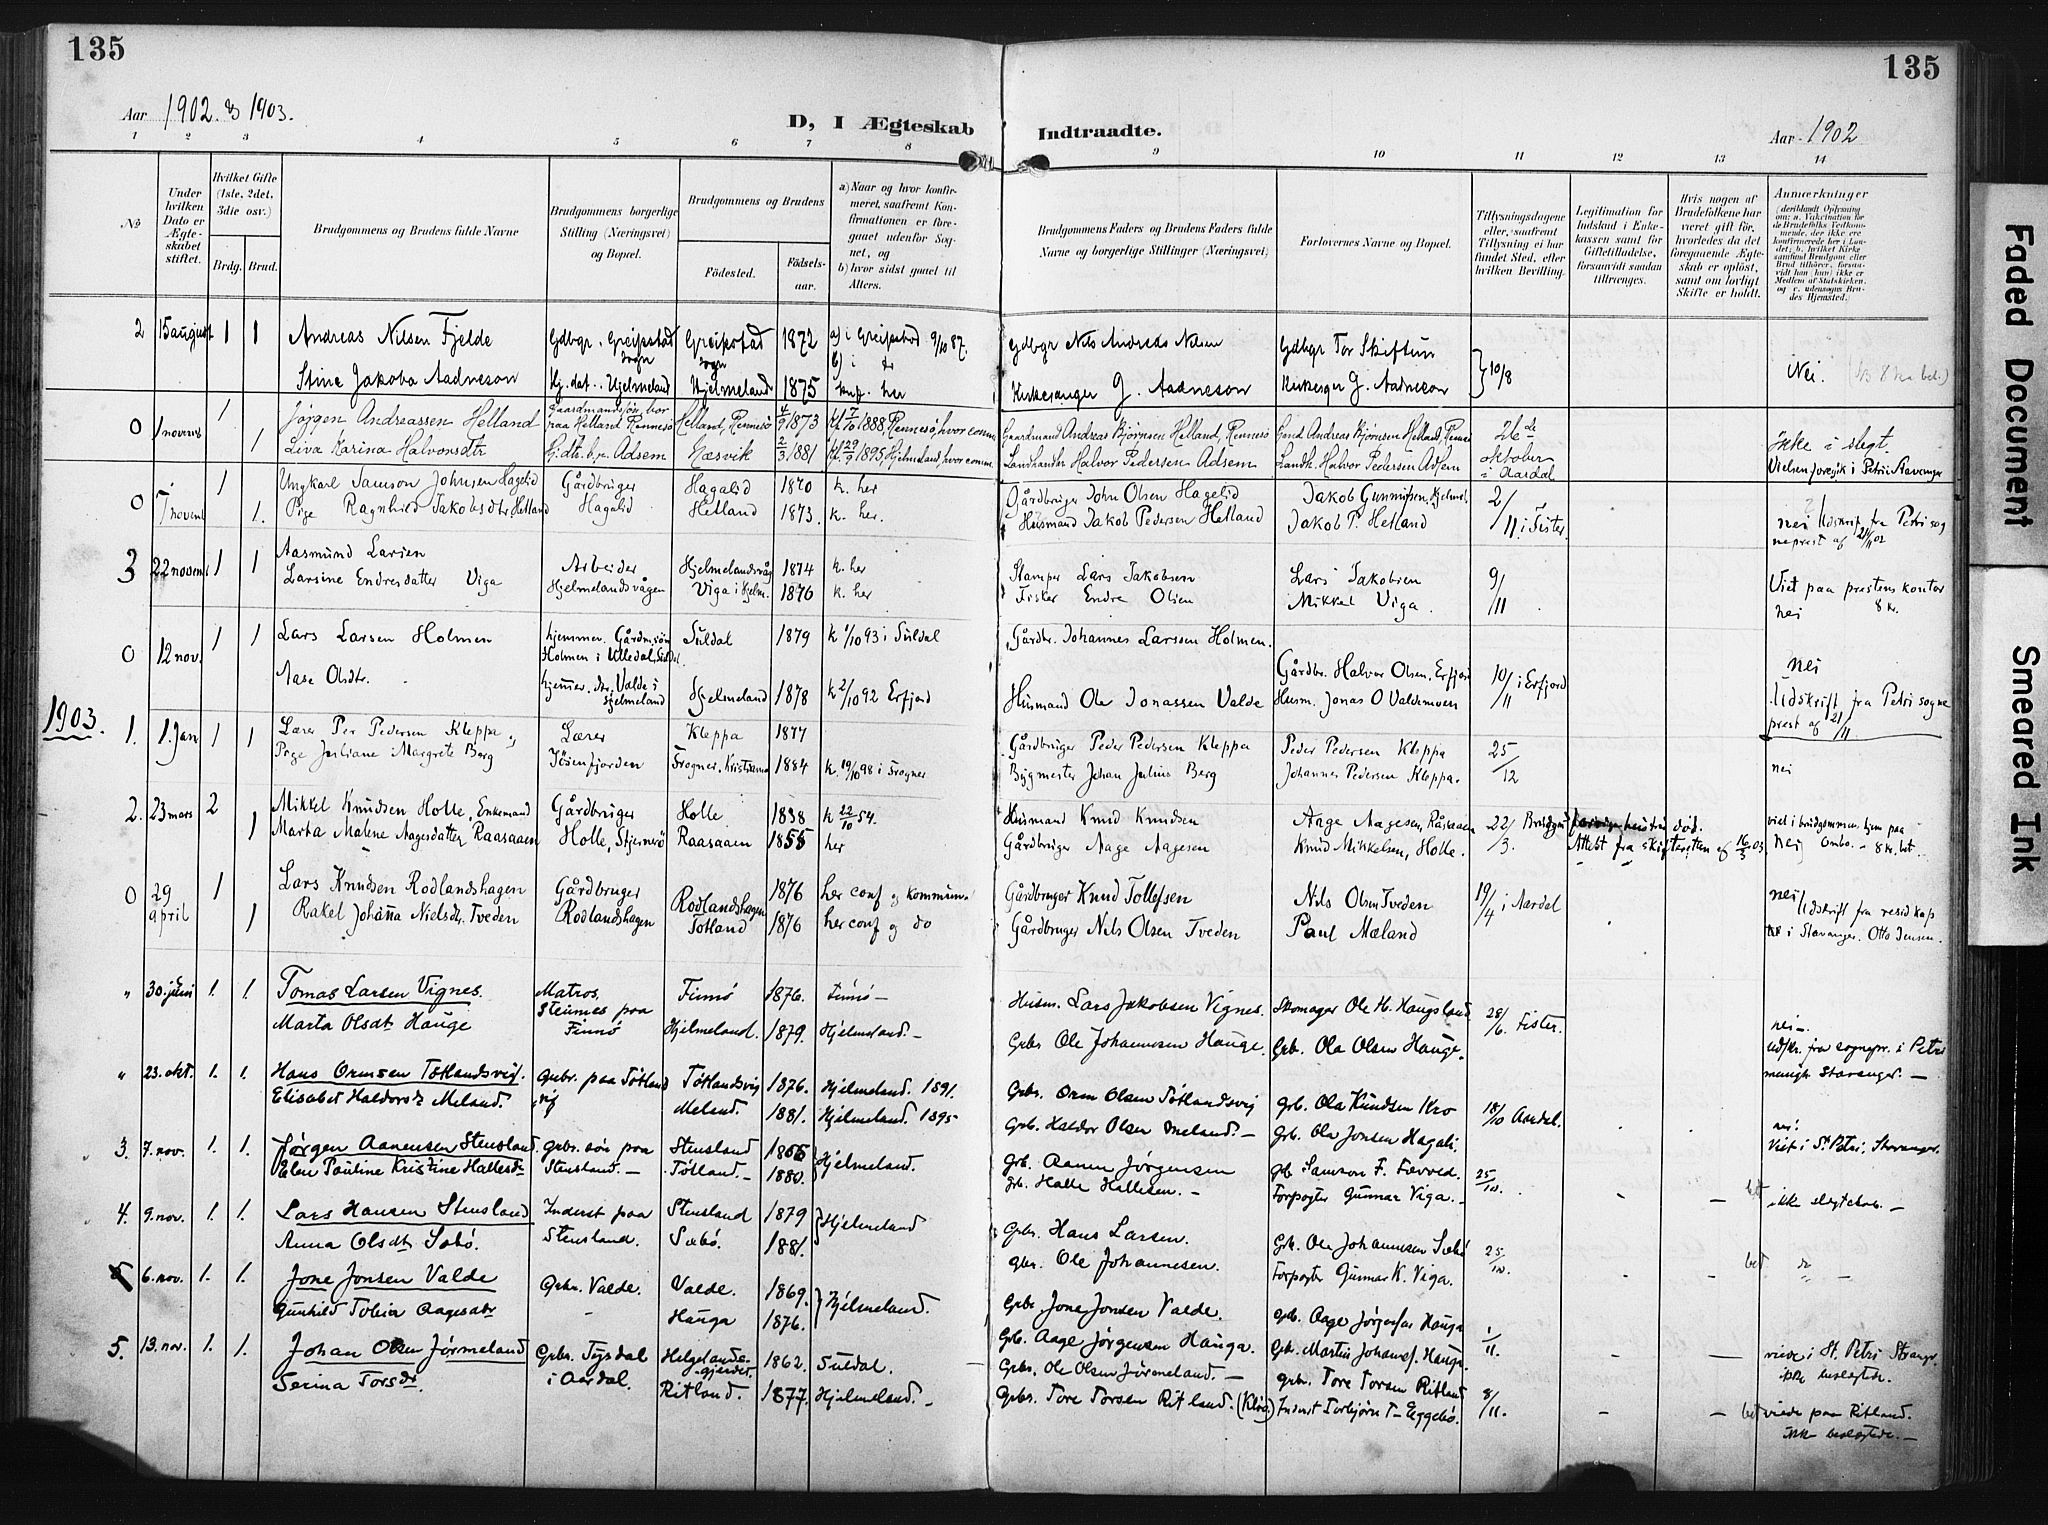 135
135
Aar 1902 & 1903.
D, I Ægteskab
Indtraadte.
Aar 1902
1 2 3 4 5 6 7 8 9 10 11 12 13 14
No
Under hvilken Dato er Ægteskabet stiftet.
Hvilket Gifte (1ste, 2det, 3die osv.)
Brdg. Brud.
Brudgommens og Brudens fulde Navne
Brudgommens borgerlige Stilling (Næringsvei) og Bopæl.
Brudgommens og Brudens
Fødested.
Fødselsaar.
a) Naar og hvor konfirmeret, saafremt Konfirmationen er foregaaet udenfor Sognet, og
b) hvor sidst gaaet til Alters.
Brudgommens Faders og Brudens Faders fulde Navne og borgerlige Stillinger (Næringsvei)
Forlovernes Navne og Bopæl.
Tillysningsdagene eller, saafremt Tillysning ei har fundet Sted, efter hvilken Bevilling.
Legitimation for Indskud i Enkekassen samt for Giftetilladelse, forsaavidt saadan tiltrænges.
Hvis nogen af Brudefolkene har været gift før, hvorledes da det foregaaende Ægteskab er opløst, samt om lovligt Skifte er holdt.
Anmerkninger
2 15 august 1 1 Andreas Nilsen Fjelde Gdbgr. Greipstad sogn Greipstad sogn 1872 a) i Greipstad 9/10 87. Gdbgr Nils Andreas Nilsen Gdbgr Tor Skiftun 10/8 Nei.
Stine Jakoba Aadneson Hjelmeland Hjelmeland 1875 her Kirkesanger J. Aadneson Kirkesger J. Aadneson
0 1 novemb 1 Jørgen Andreassen Helland gaardmandssøn, bor paa Helland Rennesø Helland, Rennesø 4/9 1873 1888, Rennesø, hvor comm. Gaardmand Andreas Bjørnsen Helland, Rennesø Andreas Bjørnsen Helland, Rennesø 26de oktober i Aardal Ikke i slegt.
1 Liva Karina Halvorsdtr Adsem Næsvik 2/3 1881 29/9 1895, Hjelmeland, hvor comm. Landhandler Halvor Pedersen Adsem Landh. Halvor Pedersen Adsem Vielsen foregik i Petri Stavanger
0 7 novemb 1 Ungkarl Samson Johnsen Hagalid Gårdbruger Hagalid Hagalid 1870 k. her Gårdbruger John Olsen Hagelid Jakob Gunnufsen, Hjelmel. 2/11 i Fister
1. Pige Ragnhild Jakobsdtr. Hetland Hetland 1873. k. her. Husmand Jakob Pedersen Hetland Jakob P. Hetland nei Udskrift fra Petri sogneprest af 21/11 02
3 22 novemb 1 1 Aasmund Larsen Arbeider Hjelmelandsvåg 1874 k. her Stamper Lars Jakobsen Lars Jakobsen 9/11 Viet paa prestens kontor 8 kr.
Larsine Endresdatter Viga Hjelmelandsvågen Viga i Hjelm. 1876 k. her Fisker Endre Olsen Mikkel Viga. nei
0 12 nov. 1 1 Lars Larsen Holmen hjemmev. Gårdmsøn Holmen i Suldal 1879 k 1/10 93 i Suldal Gårdbr. Johannes Larsen Holmen. Gårdbr. Halvor Olsen, Erfjord 10/11 i Erfjord nei
Aase Olsdtr. hjemmev. dtr. Valde i Hjelmeland Hjelmeland 1878 k 2/10 92 Erfjord Husmand Ole Jonassen Valde Husm. Jonas O Valdemoen Udskrift fra Petri sogneprest af 21/11
1903.
1. 1. Jan 1 1 Lærer Per Pedersen Kleppa og Lærer Kleppa 1877 Gårdbruger Peder Pedersen Kleppa Peder Pedersen Kleppa 25/12
Pige Juliane Margrete Berg Jösenfjorden Frogner, Kristiania 1884 k. 19/10 98 i Frogner Bygmester Johan Julius Berg Johannes Pedersen Kleppa. nei
2. 23 mars 2 Mikkel Knudsen Holle, Enkemand Gårdbruger Holle 1838 k 22/10 54. Husmand Knud Knudsen Aage Aagesen, Råsaaen 22/3. død. viet i brudgommens hjem paa Ombo. - 8 kr. bet.
1 Marta Malene Aagesdatter Raasaaen Holle, Stjernerö Raasaaen 1855 her Gårdbruger Aage Aagesen Knud Mikkelsen, Holle. Attest fra skifteretten af 16/3 03. Nei
0 29 april 1 Lars Knudsen Rodlandshagen Gårdbruger Rodlandshagen 1876 her conf og kommun. Gårdbruger Knud Tollefsen Nils Olsen Tveden 19/4 i Aardal nei
1 Rakel Johanna Nielsdtr. Tveden Rodlandshagen Totland 1876 her conf og do Gårdbruger Nils Olsen Tveden Paul Mæland Udskrift fra resid kap i Stavanger. Otto Jensen.
" 30. juni 1. 1. Tomas Larsen Vignes. Matros. Steinnes paa Finnö Finnö 1876. Finnö — Husm. Lars Jakobsen Vignes. Skomager Ole H. Haugsland 28/6. Fister. nei —.
Marta Olsdt. Hauge Hjelmeland. 1879. Hjelmeland. — Grbr Ole Johannesen Hauge. Grb. Ola Olsen Hauge. udskr. fra sognepr. i Petri menigh. Stavanger. —
" 23. okt. 1. 1. Hans Ormsen Tøtlandsvig. grbr. paa Tøtlandvig Tøtlandsvig 1876. Hjelmeland. 1891. Grbr. Orm Olsen Tøtlandsvig Grb. Ola Knudsen Kro 18/10 Aardal.
Elisabet Haldorsdr Meland. Meland. 1881. Hjelmeland. 1895 Grb. Haldor Olsen Meland. — Grb. Ola Jonsen Hagali. nei Viet i St. Petri, Stavanger.
3. 7. nov. 1. 1. Jørgen Aanensen Stensland. grbr. søn paa Stensland. — Stensland Hjelmeland. Grb. Aanen Jørgensen Gb. Samson F. Fævold. 25/10.
Elen Pauline Kristine Hallesdr Tøtland. — 1880. Grb. Halle Hallesen. — Forpagter Gunnar Viga. — bet ikke slegtskab. —
4. 9. nov. 1. 1. Lars Hansen Stensland Inderst paa Stensland. Stensland 1879 Hjelmeland Grbr. Hans Larsen. Grb. Ole Johannesen Sæbö 25/10.
Anna Olsdt Sæbö. Sæbö. 1881. Gbr. Ole Johannesen. Forpagter Gunnar K. Viga. bet
6. nov. 1. 1. Jone Jonsen Valde Grbr. Valde. Valde. 1869. Hjelmeland. Grbr. Jone Jonsen Valde. Grb. Aage Jørgensen Hauga 1/11.
Gunhild Tobia Aagesdtr Hauga 1876. Grb. Aage Jørgensen Hauga. Grb. Martin Johansf. Hauge.
5. 13. nov. 1. 1. Johan Olsen Jørmeland Grbr. Tysdal i Aardal. Helgelandsgjerdet 1862. Suldal. Grb. Ole Olsen Jørmeland. — Grbr. Tore Torsen Ritland 8/11. viede i St. Petri Stvangr. ikke beslegtede.
Serina Torsdr. Ritland. 1877. Hjelmeland. — Grbr. Tore Torsen Ritland. Inderst Torbjørn T- Eggebö. bet viede paa Ritland. ikke beslegtede. —
Faded Document
Smeared Ink